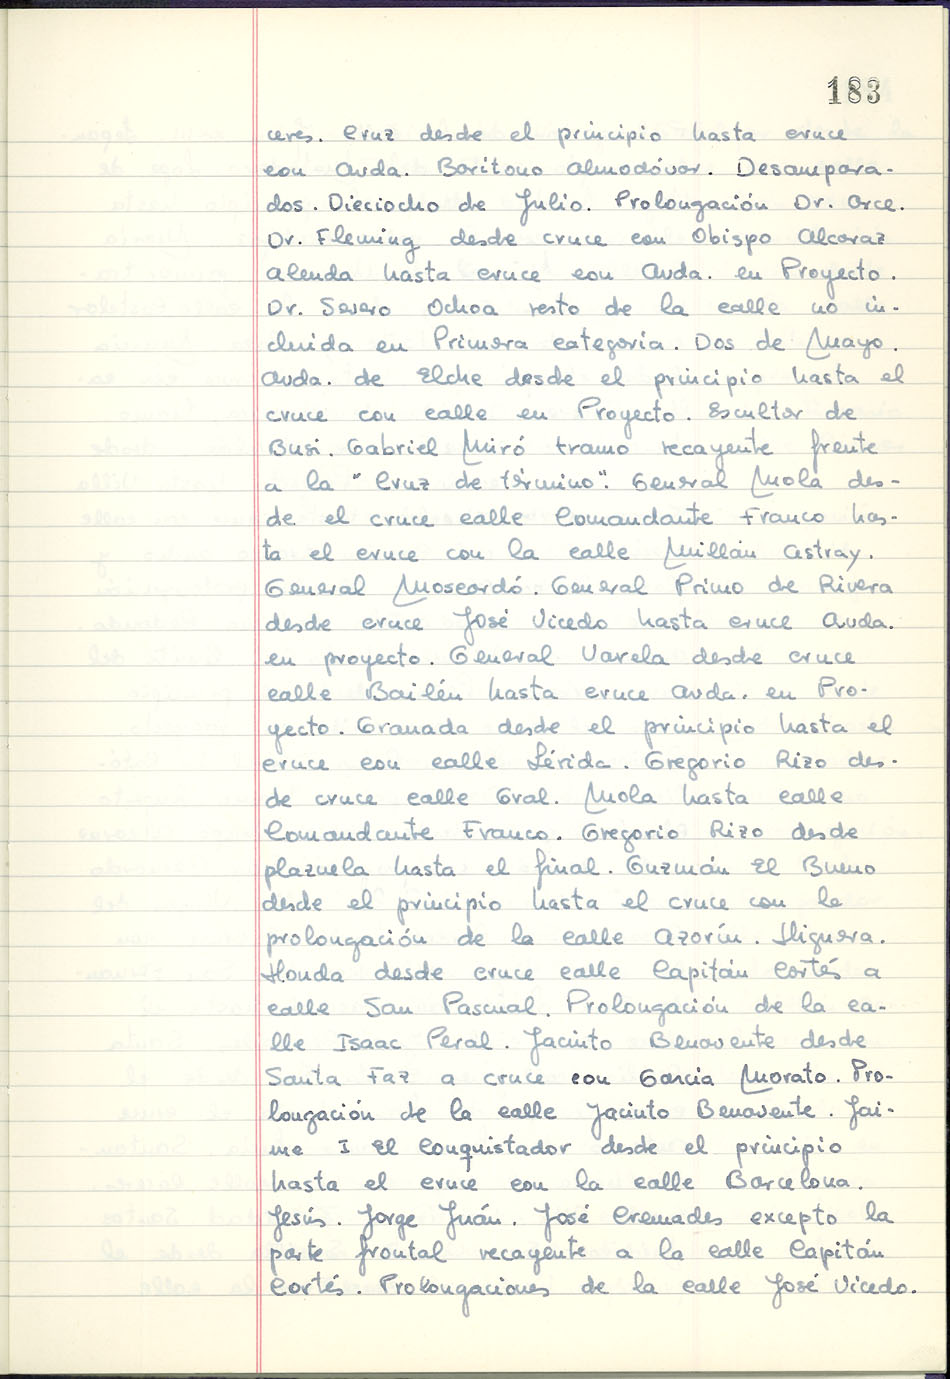 183
ceres. Cruz desde el principio hasta cruce
con Avda. Barítono Almodóvar. Desampara-
dos. Dieciocho de Julio. Prolongación Dr. Arce.
Dr. Fleming desde cruce con Obispo Alcaraz
Alenda hasta cruce con Avda. en Proyecto.
Dr. Severo Ochoa resto de la calle no in-
cluida en Primera categoría. Dos de Mayo.
Avda. de Elche desde el principio hasta el
cruce con calle en Proyecto. Escultor de
Busi. Gabriel Miró tramo recayente frente
a la "Cruz de término". General Mola des-
de el cruce calle Comandante Franco has-
ta el cruce con la calle Millán Astray.
General Moscardó. General Primo de Rivera
desde cruce José Vicedo hasta cruce Avda.
en proyecto. General Varela desde cruce
calle Bailén hasta cruce Avda. en Pro-
yecto. Granada desde el principio hasta el
cruce con calle Lérida. Gregorio Rizo des-
de cruce calle Gral. Mola hasta calle
Comandante Franco. Gregorio Rizo desde
plazuela hasta el final. Guzmán El Bueno
desde el principio hasta el cruce con la
prolongación de la calle Azorín. Higuera.
Honda desde cruce calle Capitán Cortés a
calle San Pascual. Prolongación de la ca-
lle Isaac Peral. Jacinto Benavente desde
Santa Faz a cruce con García Morato. Pro-
longación de la calle Jacinto Benavente. Jai-
me I El Conquistador desde el principio
hasta el cruce con la calle Barcelona.
Jesús. Jorge Juán. José Cremades excepto la
parte frontal recayente a la calle Capitán
Cortés. Prolongaciones de la calle José Vicedo.